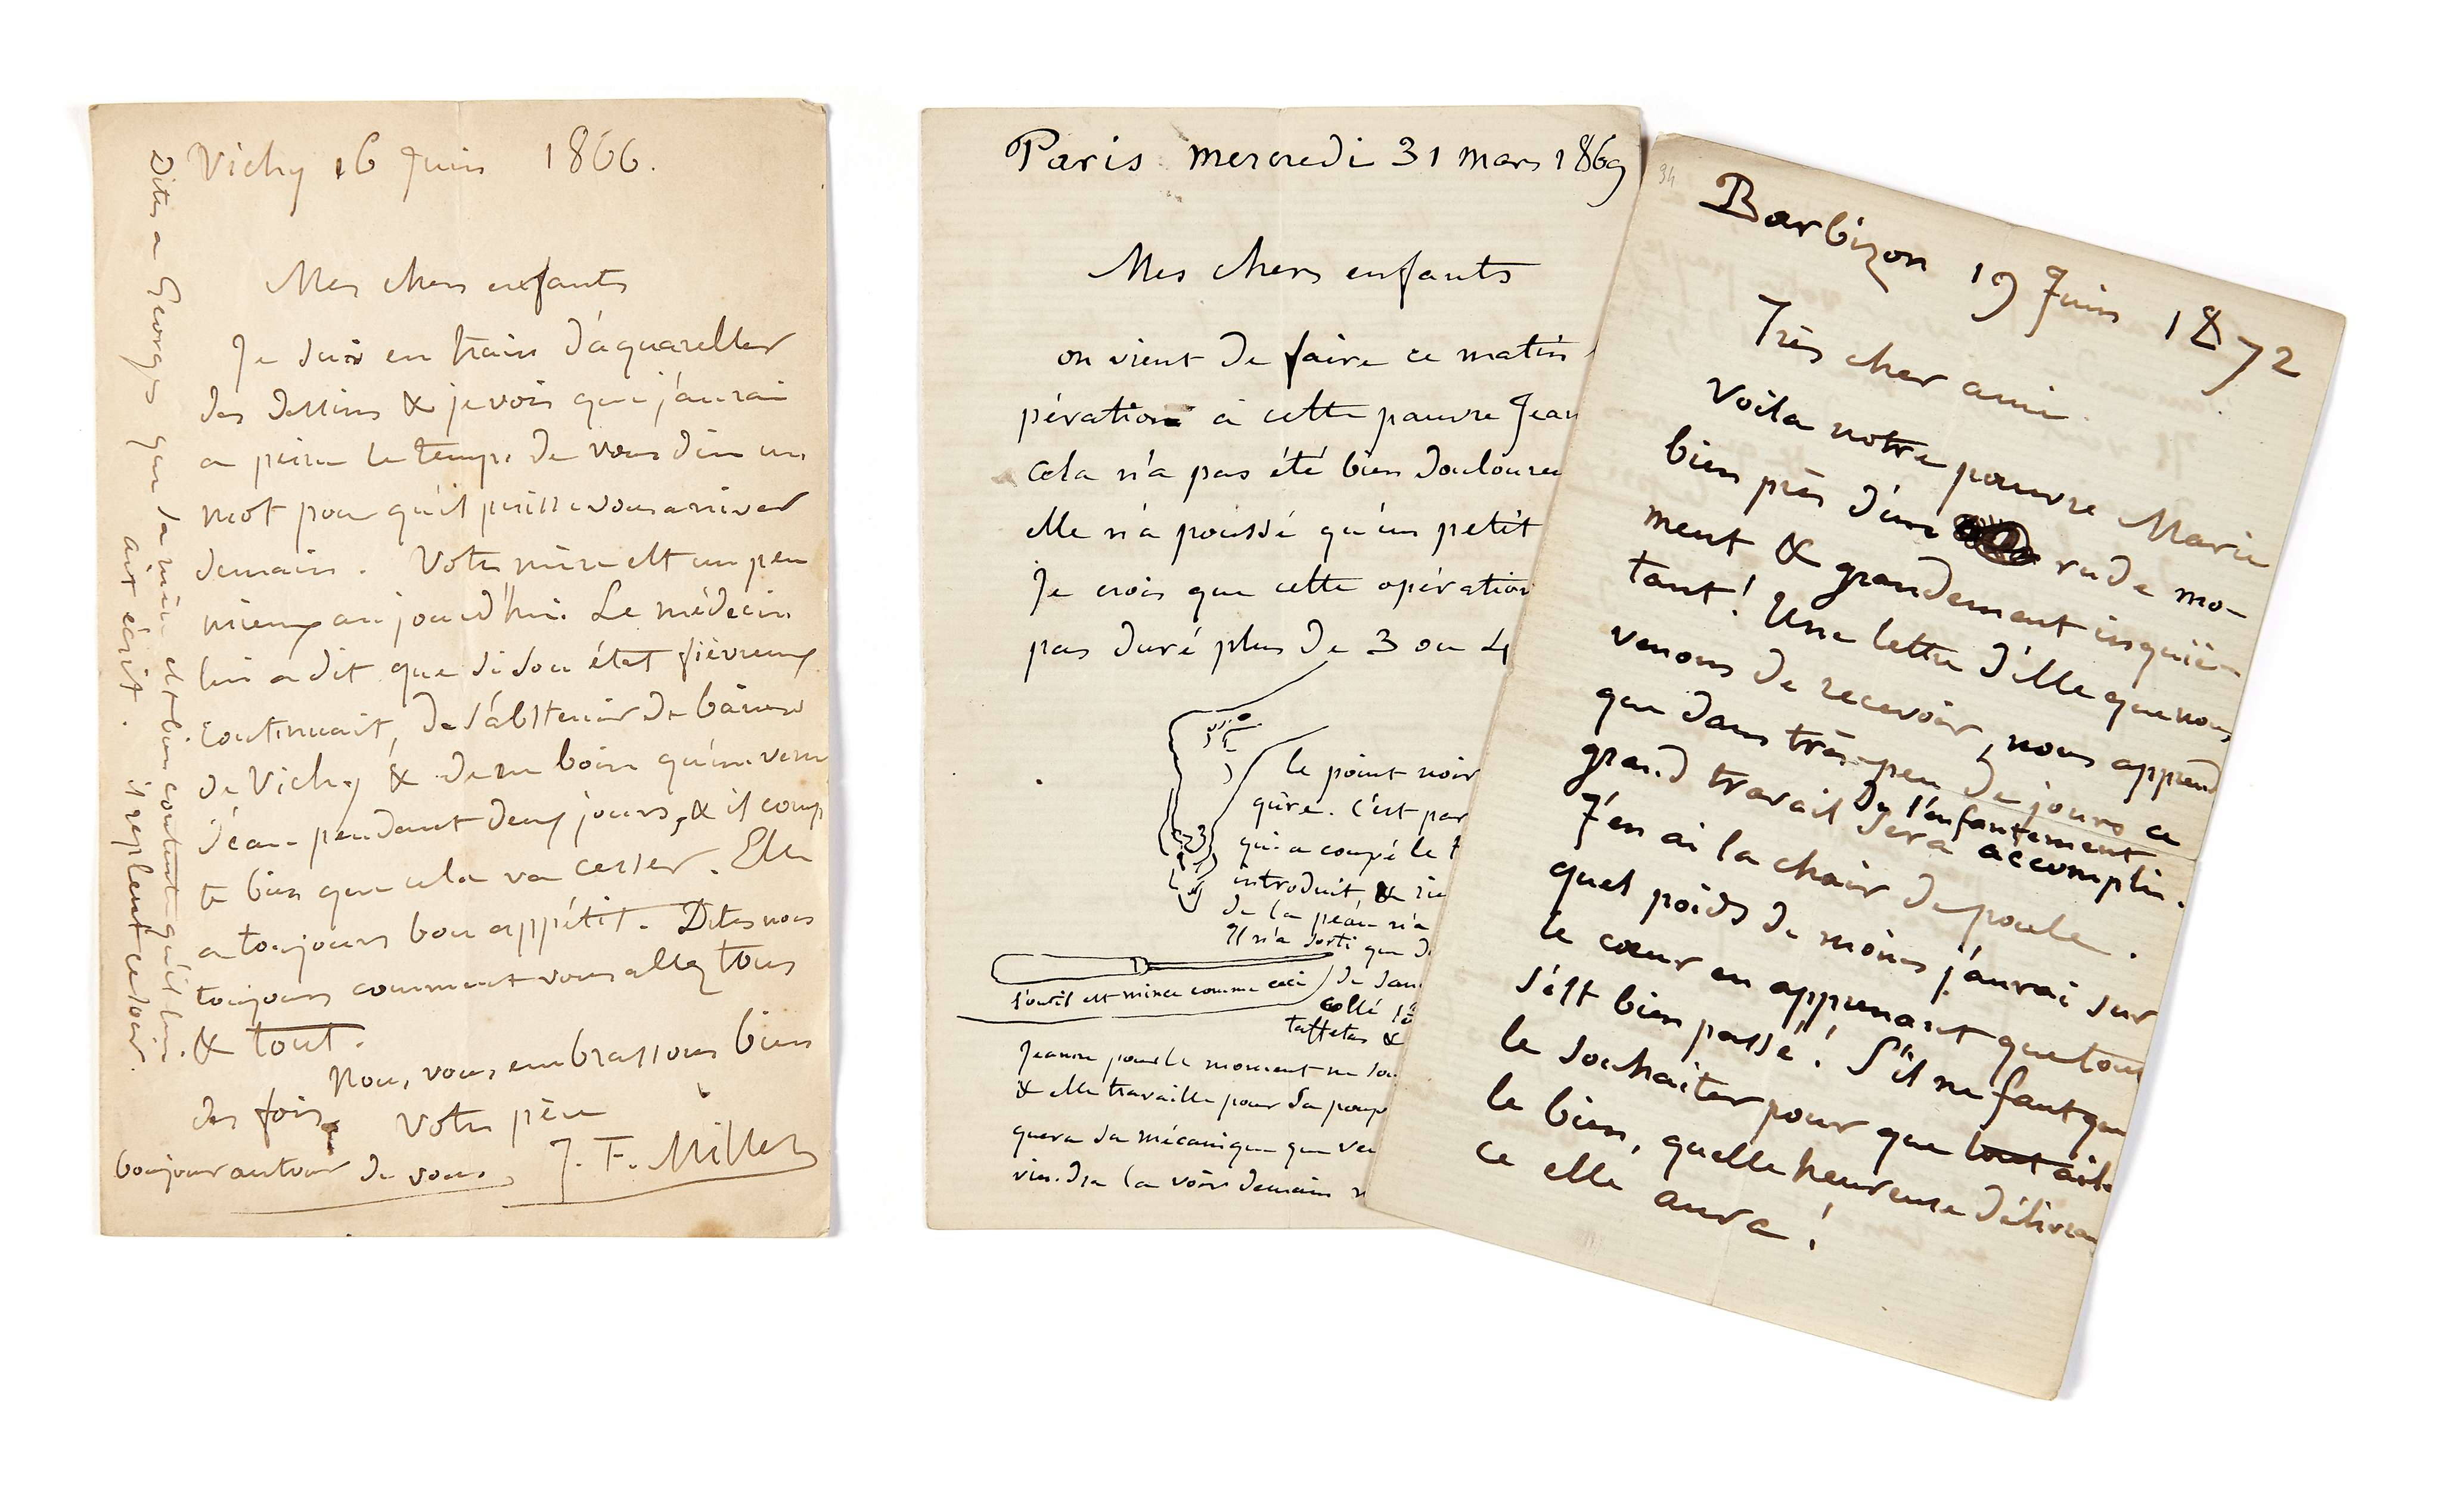 Vichy 16 Juin 1866.
Mes chers enfants
Je suis en train d'aquareller
des dessins & je vois que j'aurai
a peine le temps de vous dire un
mot pour qu'il puisse vous arriver
demain. Votre mère est un peu
mieux aujourd'hui. Le médecin
lui a dit que si son état fièvreux
continuait, de s'abstenir de bains
de Vichy & de ne boire qu'un verre
d'eau pendant deux jours, & il comp
te bien que cela va cesser. Elle
a toujours bon appétit. Dites nous
toujours comment vous allez tous
& tout.
Nous vous embrassons bien
des fois. Votre père
bonjour autour de vous. J. F. Millet
Dites a Georges que sa mère est bien contente qu'il lui
ait écrit. il repleut ce soir.
Paris mercredi 31 mars 1869
Mes chers enfants
on vient de faire ce matin
pération à cette pauvre Jean
cela n'a pas été bien douloureu
elle n'a poussé qu'un petit
Je crois que cette opération
pas duré plus de 3 ou 4
le point noir
qûre. C'est par
qui a coupé le
introduit, &
de la peau n'a
Il n'a sorti que d
l'outil est mince comme ceci
de san
collé
taffetas &
Jeanne pour le moment ne
& elle travaille pour sa poup
quera sa mécanique que
viendra la voir demain
94
Barbizon 19 Juin 1872
Très cher ami
Voila notre pauvre Marie
bien près d'un rude mo-
ment & grandement inquié-
tant! Une lettre d'elle que nous
venons de recevoir, nous apprend
que dans très-peu de jours ce
grand travail de l'enfantement sera accompli.
J'en ai la chair de poule.
quel poids de moins j'aurai sur
le cœur en apprenant que tout
s'est bien passé! S'il ne faut que
le souhaiter pour que tout aille
le bien, quelle heureuse délivran
ce elle aura!